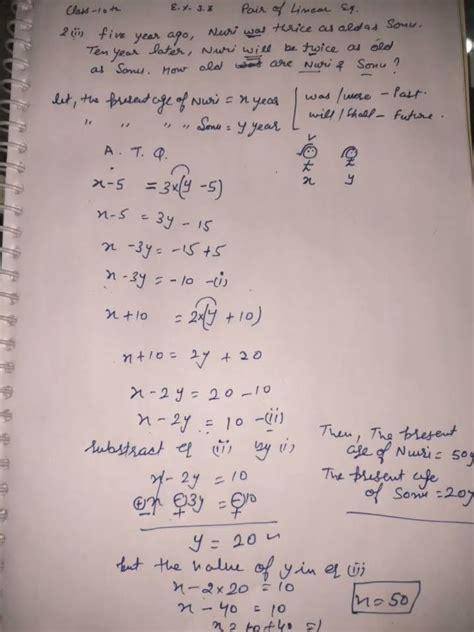 Class-10th Ex-3.3 Pair of Linear Eq.
2(ii) five year ago, Nuri was thrice as old as Sonu.
Ten year later, Nuri will be twice as old
as Sonu. How old are Nuri & Sonu?
Let, the present age of Nuri = x year
" " " " Sonu = y year
was/were - Past.
will/shall - Future.
A. T. Q.
x y
x-5 = 3x(y-5)
x-5 = 3y - 15
x -3y = -15+5
x-3y = -10 -(i)
x+10 = 2x(y+10)
x+10 = 2y + 20
x-2y = 20 -10
x-2y = 10 -(ii)
Substract eq (ii) by (i)
x-2y = 10
x 3y = 10
y = 20
put the value of y in eq (ii)
x-2×20 = 10
x-40 = 10
x = 10+40
x=50
Then, The present
age of Nuri = 50y
The present age
of Sonu = 20y